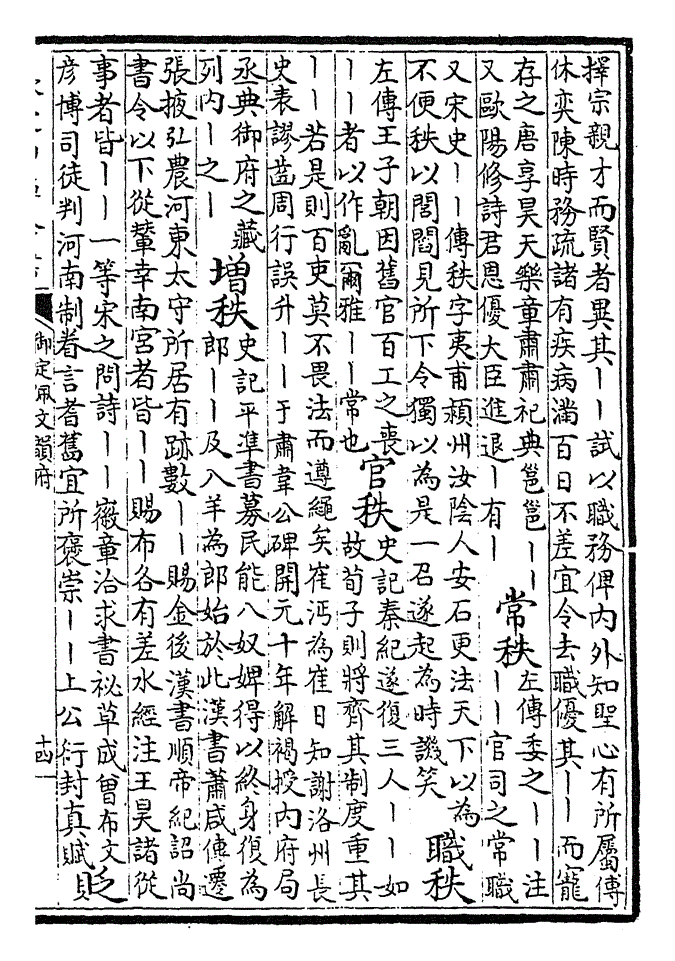 擇宗親才而賢者異其丨丨試以職務俾内外知聖心有所屬傳
休奕陳時務疏諸有疾病滿百日不差宜令去職優其丨丨而寵
存之唐享昊天樂章肅肅祀典邕邕丨丨
又歐陽修詩君恩優大臣進退丨有丨
常秩
左傳委之丨丨注
丨丨官司之常職
又宋史丨丨傳秩字夷甫頴州汝陰人安石更法天下以為
不便秩以閭閻見所下令獨以為是一召遂起為時譏笑
職秩
左傳王子朝因舊官百工之喪
丨丨者以作亂爾雅丨丨常也
官秩
史記秦紀遂復三人丨丨如
故荀子則將齊其制度重其
丨丨若是則百吏莫不畏法而遵繩矣崔沔為崔日知謝洛州長
史表謬葢周行誤升丨丨于肅韋公碑開元十年解褐授内府局
丞典御府之藏
列内丨之丨
增秩
史記平準書募民能入奴婢得以終身復為
郎丨丨及入羊為郎始於此漢書蕭咸傳遷
張掖弘農河東太守所居有跡數丨丨賜金後漢書順帝紀詔尚
書令以下從輦幸南宮者皆丨丨賜布各有差水經注王昊諸從
事者皆丨丨一等宋之問詩丨丨徽章洽求書祕草成曾布文
彦博司徒判河南制眷言耆舊宜所褒崇丨丨上公衍封真賦
貶
御定佩文韻府
十四